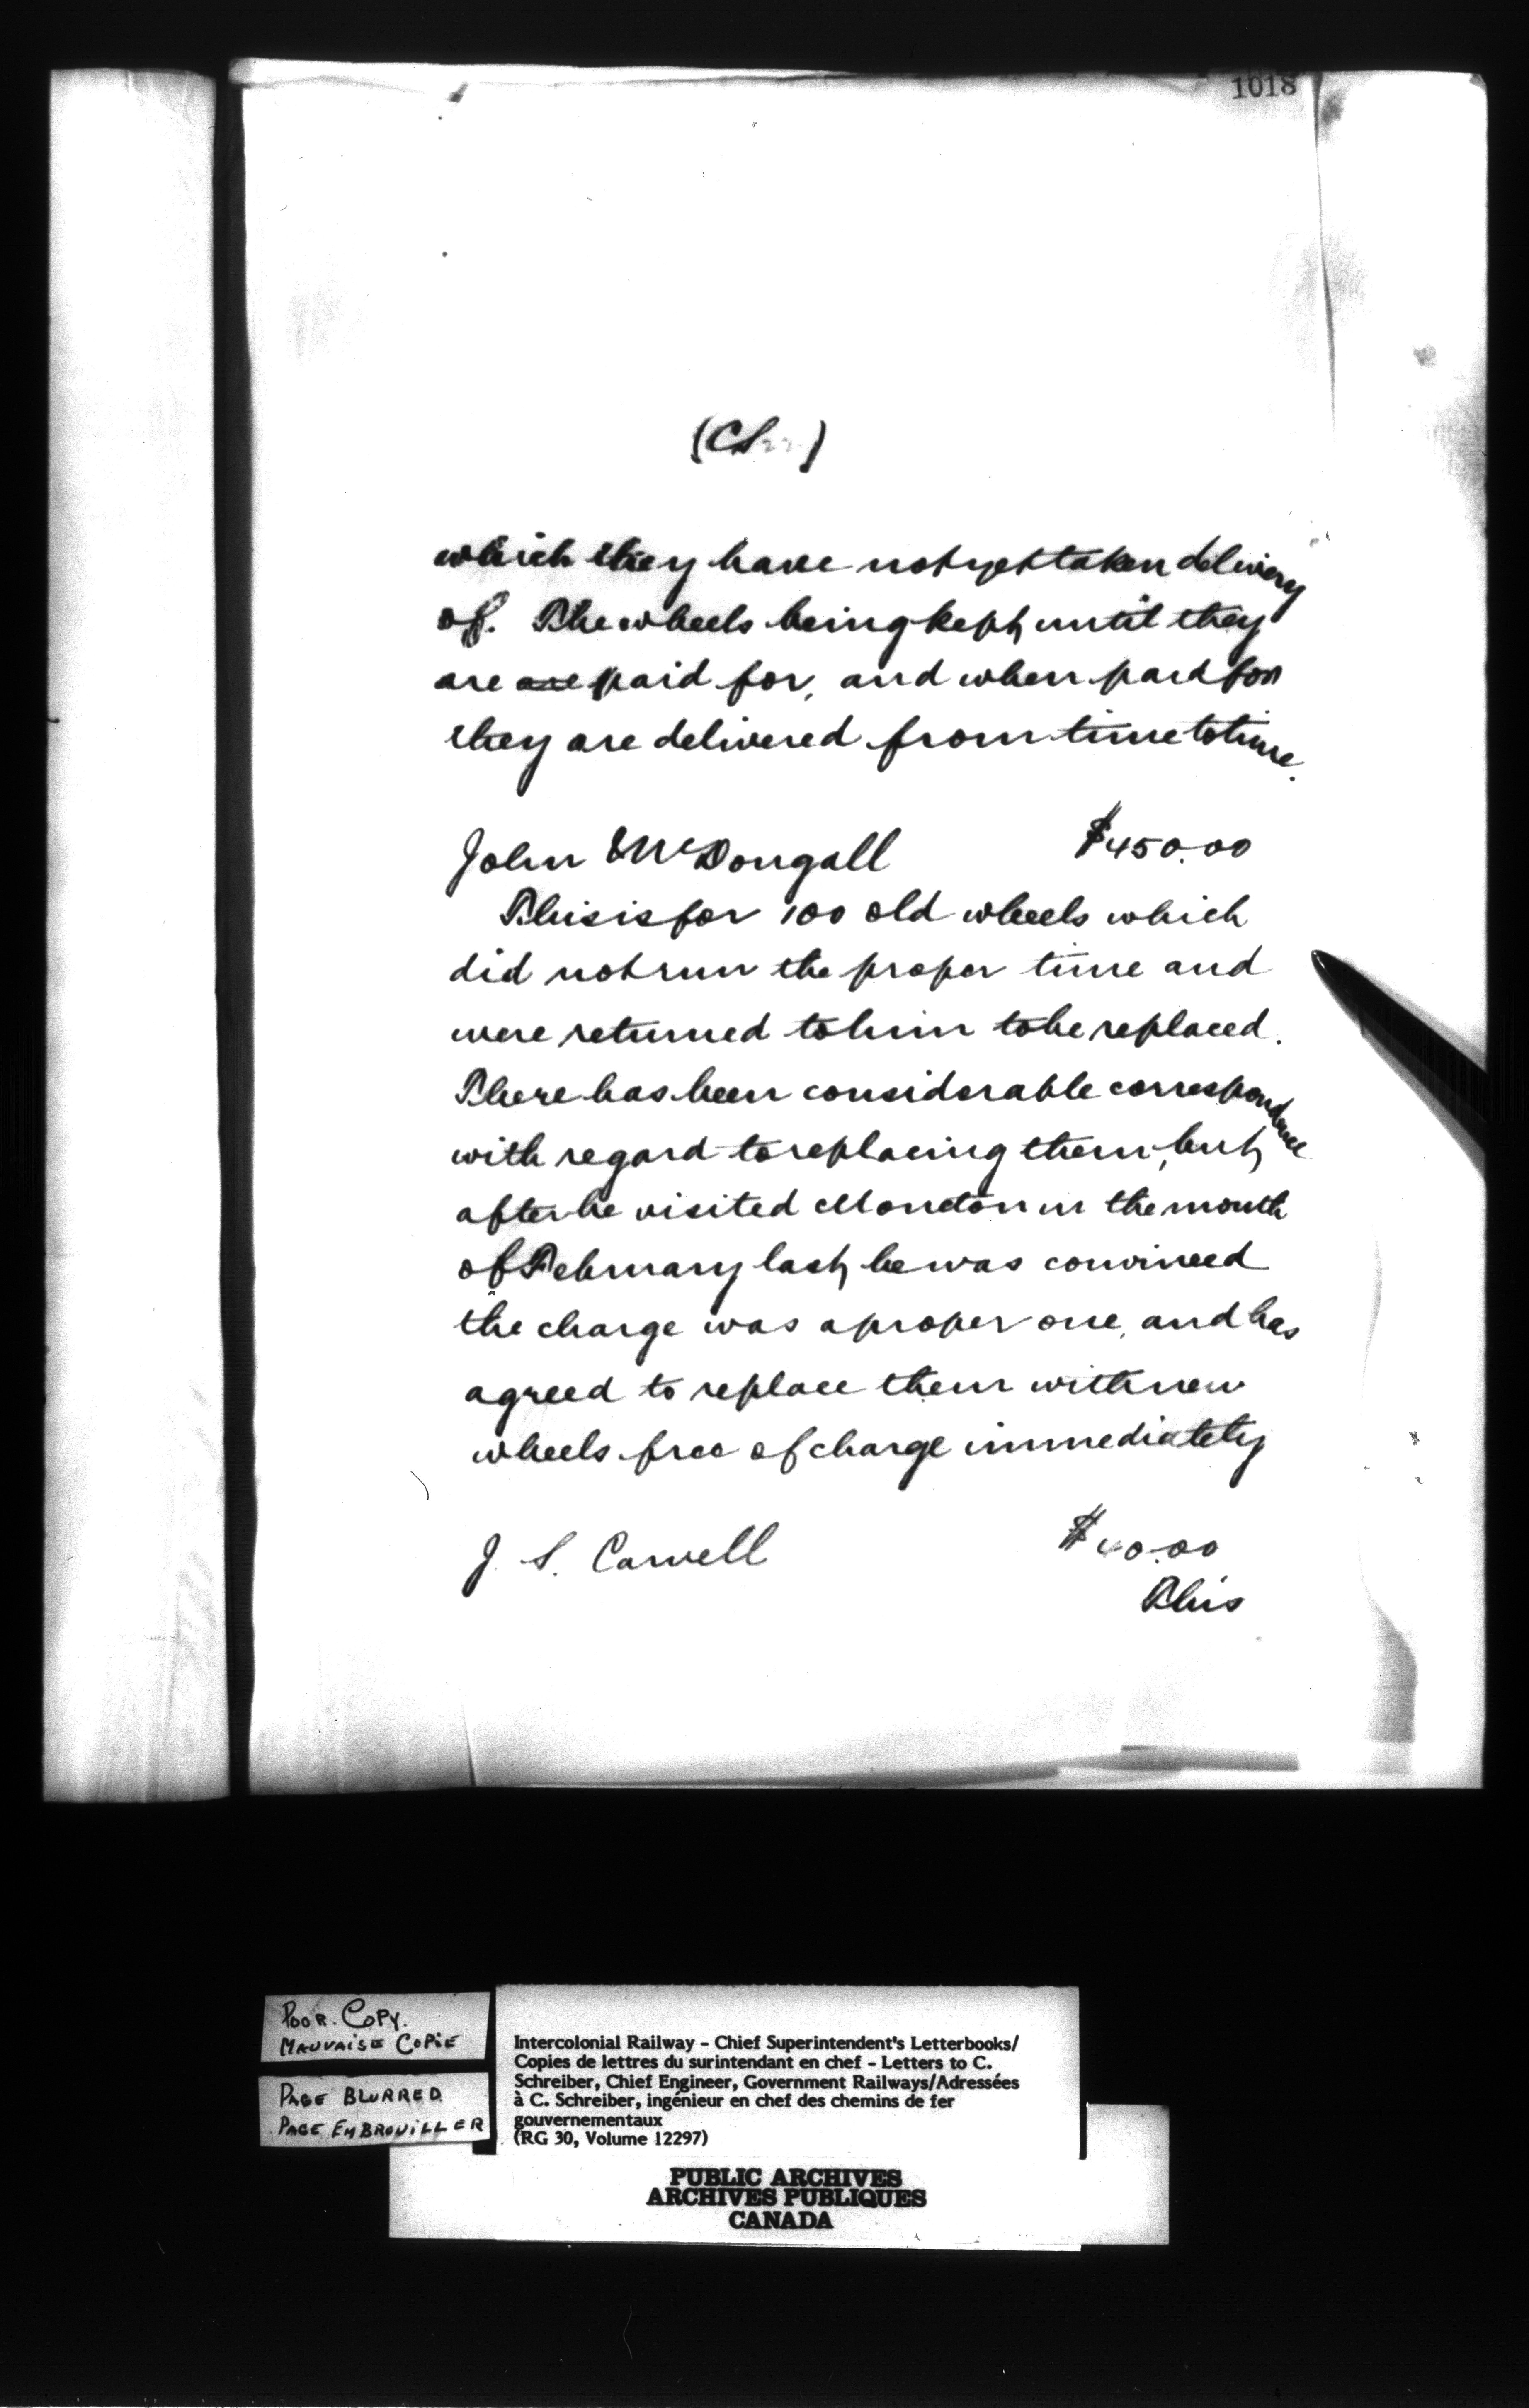 1018
(CS )
which they have not yet taken delivery
of. The wheels being kept until they
are are paid for, and when paid for
they are delivered from time to time.
John McDougall $450.00
This is for 100 old wheels which
did not run the proper time and
were returned to him to be replaced.
There has been considerable correspondence
with regard to replacing them, but
after he visited Moncton in the month
of February last he was convinced
the charge was a proper one, and has
agreed to replace them with new
wheels free of charge immediately
J. S. Carvell $40.00
This
POOR COPY.
MAUVAISE COPIE
PAGE BLURRED
PAGE EMBROUILLER
Intercolonial Railway - Chief Superintendent's Letterbooks/
Copies de lettres du surintendant en chef - Letters to C.
Schreiber, Chief Engineer, Government Railways/Adressées
à C. Schreiber, ingénieur en chef des chemins de fer
gouvernementaux
(RG 30, Volume 12297)
PUBLIC ARCHIVES
ARCHIVES PUBLIQUES
CANADA